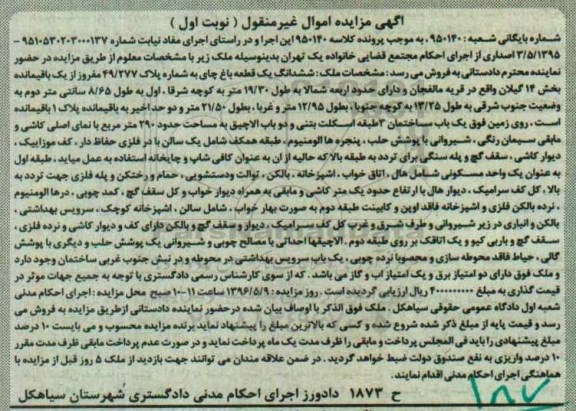 آگهی مزایده اموال غیرمنقول ( نوبت اول )
شماره بایگانی شعبه : ۹۵۰۱۴۰ ، به موجب پرونده کلاسه ۹۵۰۱۴۰ این اجرا و در راستای اجرای مفاد نیابت شماره ۹۵۱۰۵۳۰۲۰۳۰۰۰۱۳۷ –
۱۳۹۵/۵/۳ اصداری از اجرای احکام مجتمع قضایی خانواده یک تهران بدینوسیله ملک زیر با مشخصات معلوم از طریق مزایده در حضور
نماینده محترم دادستانی به فروش می رسد : مشخصات ملک : ششدانگ یک قطعه باغ چای به شماره پلاک ۴۹/۲۷۷ مفروز از یک باقیمانده
بخش ۱۴ گیلان واقع در قریه مالفجان و دارای حدود اربعه شمالا به طول ۱۹/۳۰ متر به کوچه شرقا ، اول به طول ۸/۶۵ سانتی متر دوم به
وضعیت جنوب شرقی به طول ۱۳/۲۵ به کوچه جنوبا ، بطول ۱۲/۹۵ متر و غربا ، بطول ۲۱/۵۰ متر و دو حد اخیر به باقیمانده پلاک ۱ باقیمانده
است . روی زمین فوق یک باب ساختمان ۳ طبقه اسکلت بتنی و دو باب الاچیق به مساحت حدود ۲۹۰ متر مربع با نمای اصلی کاشی و
مابقی سیمان رنگی ، شیروانی با پوشش حلب ، پنجره ها الومنیوم ، طبقه همکف شامل یک سالن با در فلزی حفاظ دار ، کف موزاییک ،
دیوار کاشی ، سقف گچ و پله سنگی برای تردد به طبقه بالا که حالیه از ان به عنوان کافی شاپ و چایخانه استفاده به عمل میاید . طبقه اول
به عنوان یک واحد مسکونی شامل هال ، اتاق خواب ، اشپزخانه ، بالکن ، توالت ودستشویی ، حمام و رختکن و پله فلزی جهت تردد به
بالا ، کل کف سرامیک ، دیوار هال با ارتفاع حدود یک متر کاشی و مابقی به همراه دیوار خواب و کل سقف گچ ، کمد چوبی ، درها الومنیوم
، نرده بالکن فلزی و اشپزخانه فاقد اوپن و کابینت طبقه دوم به صورت بهار خواب ، شامل سالن ، اشپزخانه کوچک ، سرویس بهداشتی ،
بالکن و انباری در زیر شیروانی و طرف شرق و غرب کل کف سرامیک ، دیوار و سقف گچ و بالکن دارای کف و دیوار کاشی و نرده فلزی ،
سقف گچ و باربی کیو و یک اتاقک بر روی طبقه دوم . الاچیقها احداثی با مصالح چوبی و شیروانی یک پوشش حلب و دیگری با پوشش
گالی ، حیاط فاقد محوطه سازی و محصور با نرده چوبی ، یک باب سرویس بهداشتی در محوطه و در نبش جنوب غربی ساختمان وجود دارد
و ملک فوق دارای دو امتیاز برق و یک امتیاز اب و گاز می باشد . که از سوی کارشناس رسمی دادگستری با توجه به جمیع جهات موثر در
قیمت گذاری به مبلغ ریال ارزیابی گردیده است . روز مزایده : ۱۳۹۶/۵/۹ ساعت ۱۱ – ۱۰ صبح محل مزایده : اجرای احکام مدنی
شعبه اول دادگاه عمومی حقوقی سیاهکل . ملک فوق الذکر با اوصاف بیان شده در حضور نماینده دادستانی از طریق مزایده به فروش می
رسد و قیمت پایه از مبلغ ذکر شده شروع شده و کسی که بالاترین مبلغ را پیشنهاد نماید برنده مزایده محسوب و می بایست ۱۰ درصد
مبلغ پیشنهادی را باید فی المجلس پرداخت و مابقی را ظرف مدت یک ماه پرداخت نماید و در صورت عدم پرداخت مابقی ظرف مدت مقرر
۱۰ درصد واریزی به نفع صندوق دولت ضبط خواهد گردید . در ضمن علاقه مندان می توانند جهت بازدید از ملک ۵ روز قبل از مزایده با
هماهنگی اجرای احکام مدنی اقدام نمایند .
ح ۱۸۷۳ دادورز اجرای احکام مدنی دادگستری شهرستان سیاهکل